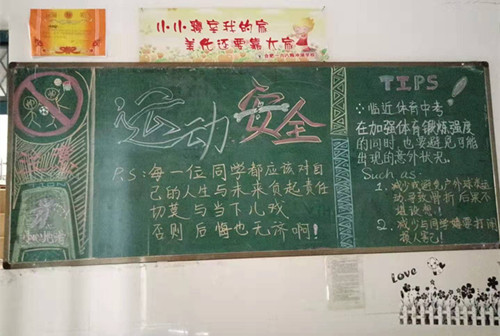 小小寝室我的家
美化还要靠大家
运动安全
P.S:每一位同学都应该对自
己的人生与未来负起责任
切莫与当下儿戏
否则后悔也无济啊!
TIPS!
临近体育中考
在加强体育锻炼强度
的同时也要避免可能
出现的意外状况。
Such as:
1、减少或避免户外球类运
动导致骨折后果不
堪设想!
2、减少与同学嬉耍打闹
损人害己!
Love